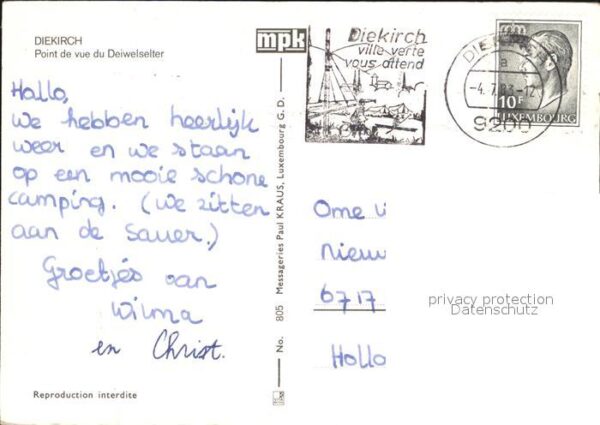 DIEKIRCH
Point de vue du Deiwelselter
mpk
Diekirch
ville verte
vous attend
DIEKIRCH
a
-4.7.83-17
9200
10F
LUXEMBOURG
Hallo,
we hebben heerlijk
weer en we staan
op een mooie schone
camping. (we zitten
aan de Sauer.)
Groetjes van
Wilma
en Christ.
Reproduction interdite
No. 805 Messageries Paul KRAUS, Luxembourg G. D.
Ome
Nieuw
6717
Hollo
privacy protection
Datenschutz